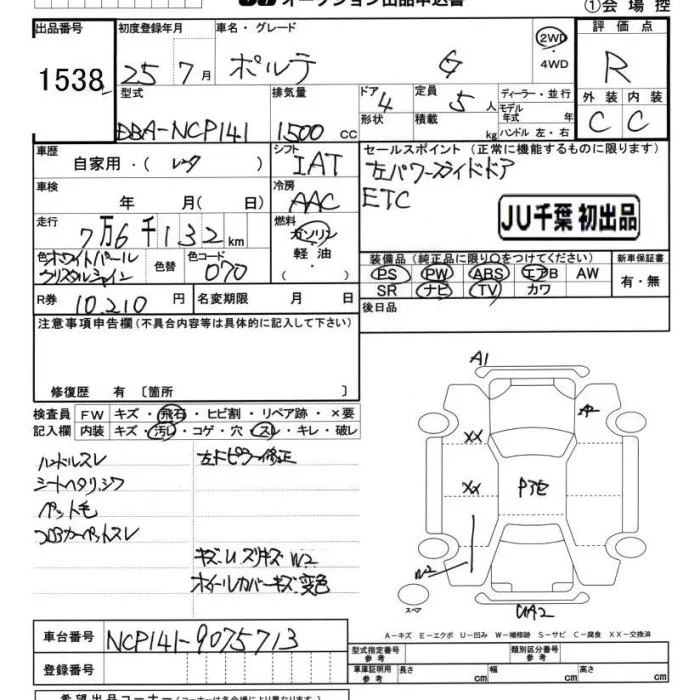 オークション出品申込書
①会場控
出品番号
1538
初度登録年月
25年7月
車名・グレード
ポルテ G
2WD
4WD
評価点
R
型式
DBA-NCP141
排気量
1500 cc
ドア
4
形状
定員
5人
積載
kg
ディーラー・並行
モデル年式 年
ハンドル 左・右
外装 内装
C C
車歴
自家用・(レンタ)
シフト
IAT
セールスポイント(正常に機能するものに限ります)
左パワースライドドア
ETC
車検
年 月(日)
冷房
AAC
JU千葉 初出品
走行
7万6千132km
燃料
ガソリン
軽油
( )
色
ホワイトパール
クリスタルシャイン
色替
色コード
070
装備品(純正品に限り○をつけてください)
PS PW ABS エアB AW
SR ナビ TV カワ
新車保証書
有・無
R券 10,210円
名変期限 月 日
後日品
注意事項申告欄(不具合内容等は具体的に記入して下さい)
修復歴 有〔箇所 〕
検査員記入欄
FW キズ・飛石・ヒビ割・リペア跡・×要
内装 キズ・汚レ・コゲ・穴・スレ・キレ・破レ
ハンドルスレ
シートヘタリ、シワ
ペット毛
フロアカーペットスレ
左Fピラー修正
キズ、U、ズリキズ W2
ホイールカバーキズ、変色
A1
XX
XX
W2
スペア
UA2
A-キズ E-エクボ U-凹み W-補修跡 S-サビ C-腐食 XX-交換済
車台番号
NCP141-9075713
登録番号
型式指定番号
参考
類別区分番号
参考
車庫証明用
参考
長さ cm 幅 cm 高さ cm
希望出品コーナー(コーナーは各会場により異なります)